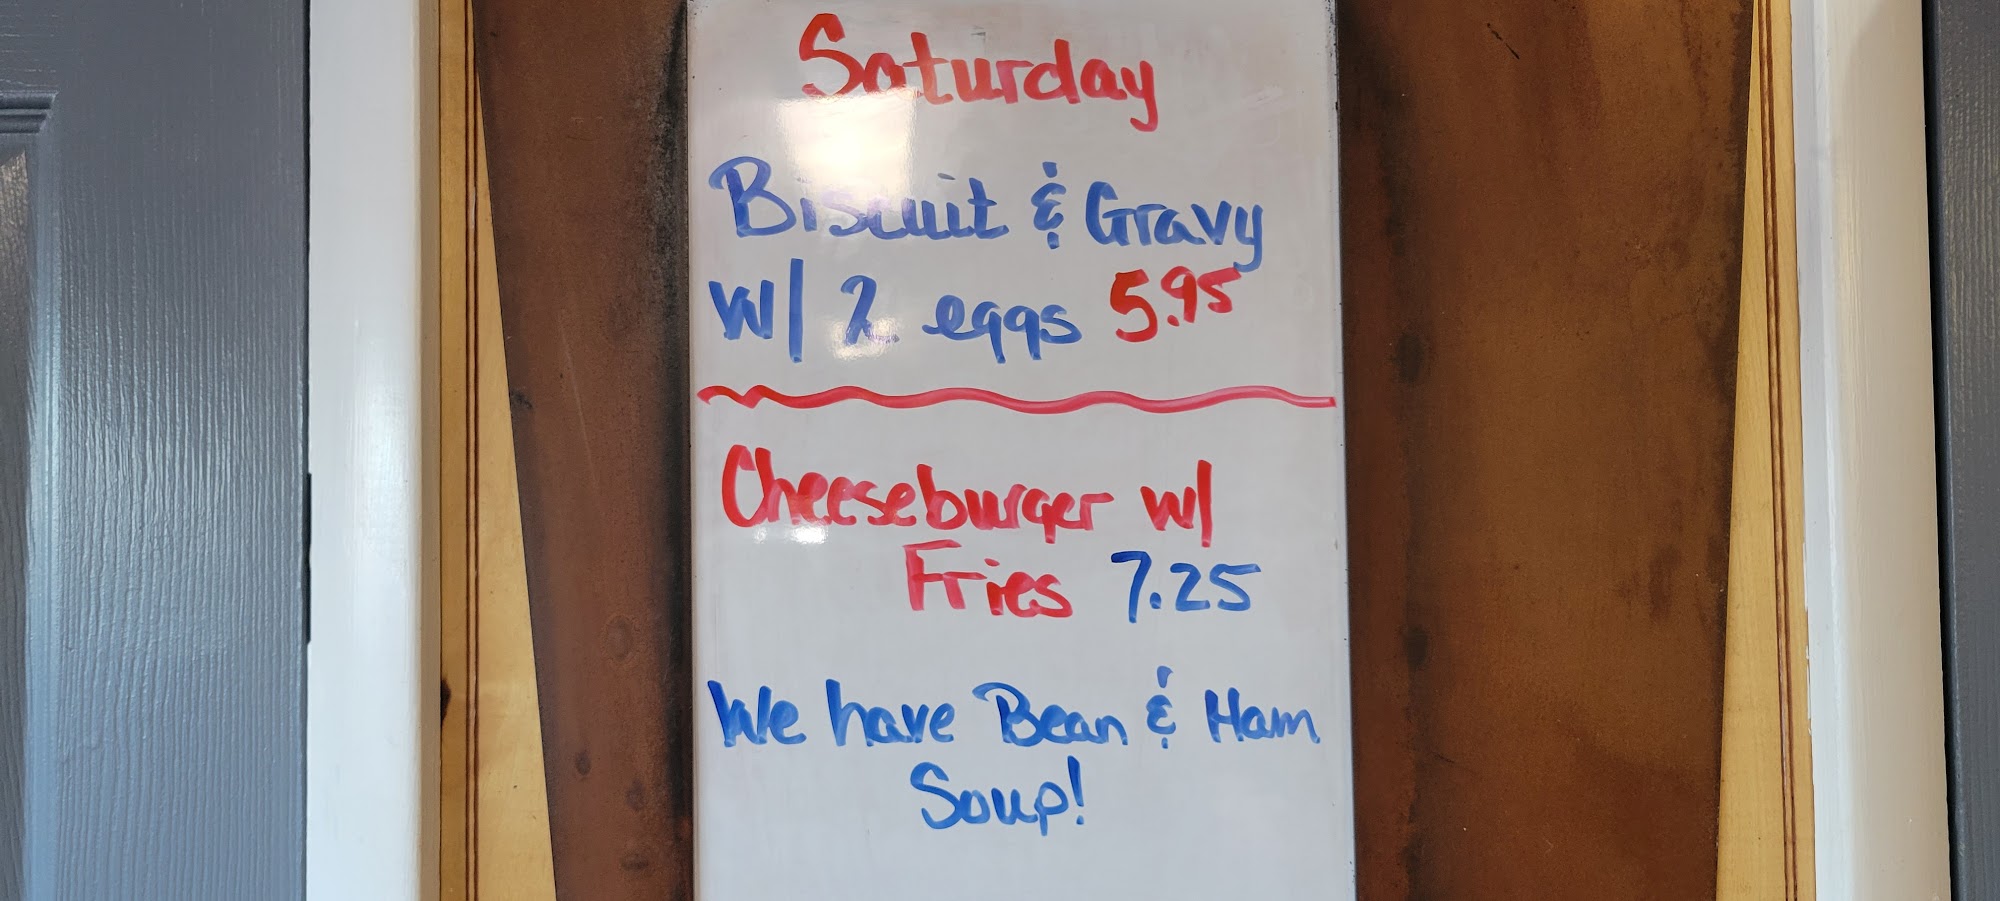 Saturday
Biscuit & Gravy
w/ 2 eggs 5.95
Cheeseburger w/
Fries 7.25
We have Bean & Ham
Soup!